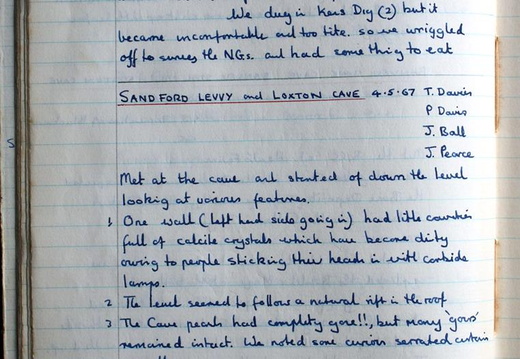 We dug in Kens Dig (2) but it
became uncomfortable and too tite. so we wriggled
off to survey the NGs. and had something to eat
SANDFORD LEVVY and LOXTON CAVE 4.5.67 T. Davies
P Davis
J. Ball
J. Pearce
Met at the cave and started of down the level
looking at various features.
1 One wall (left hand side going in) had little cavities
full of calcite crystals which have become dirty
owing to people sticking their heads in with carbide
lamps.
2 The level seemed to follow a natural rift in the roof
3 The Cave pearls had completly gone!!, but many 'gours'
remained intact. We noted some curious serrated curtain